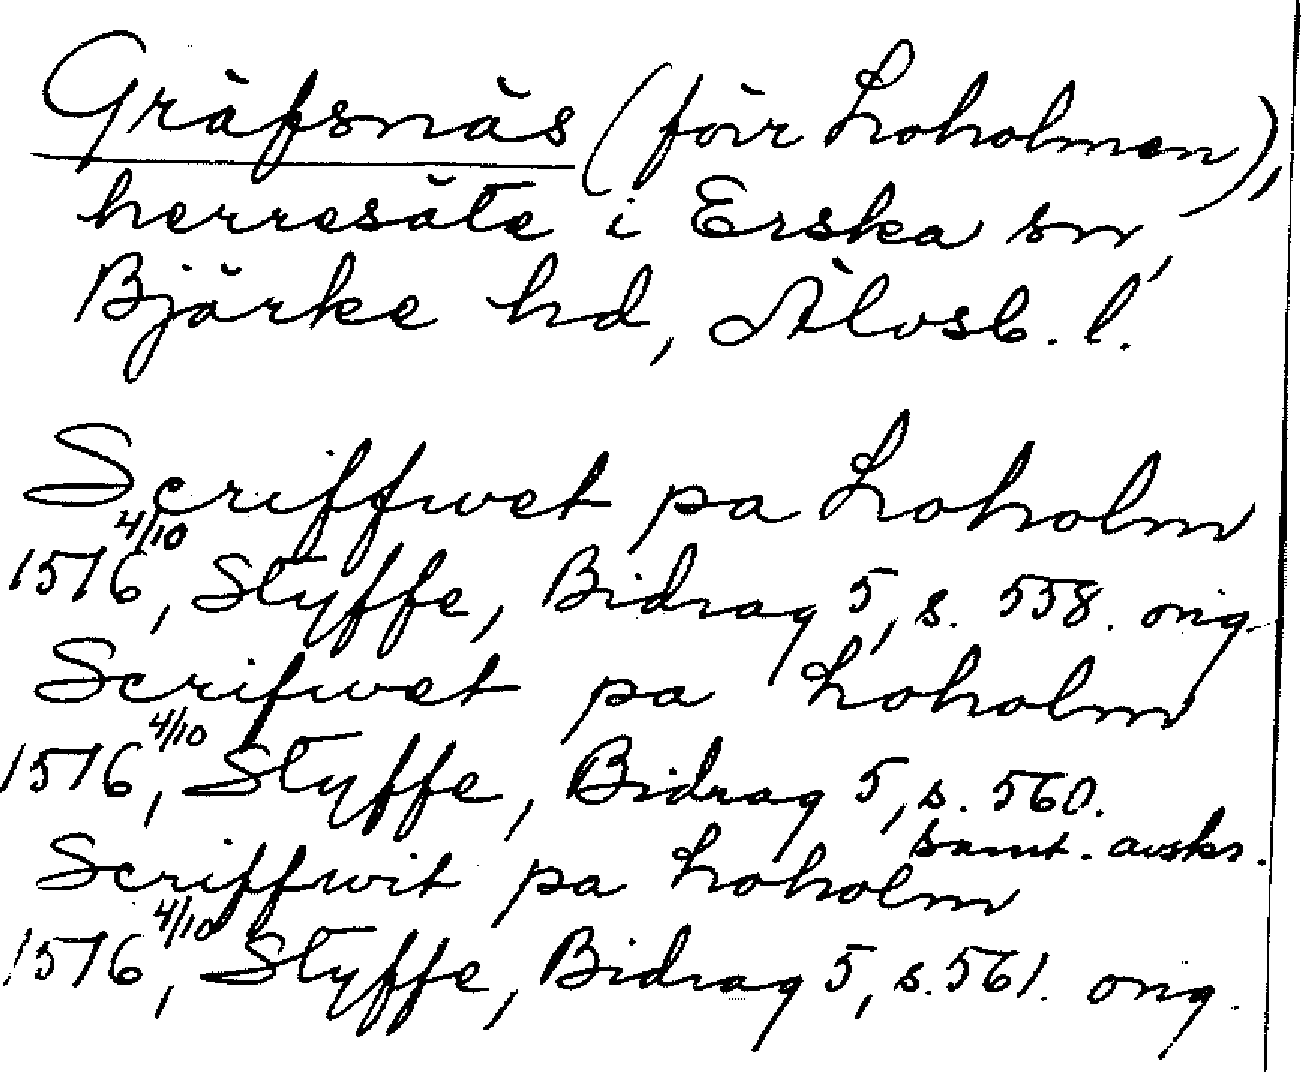 Gräfsnäs (förr Loholmen),
herresäte i Erska sn,
Bjärke hd, Älvsb. l.
Scriffwet pa Loholm
1516 4/10, Styffe, Bidrag 5, s. 558. orig.
Scrifwet pa Loholm
1516 4/10, Styffe, Bidrag 5, s. 560.
samt. avskr.
Scriffwit pa Loholm
1516 4/10, Styffe, Bidrag 5, s. 561. orig.